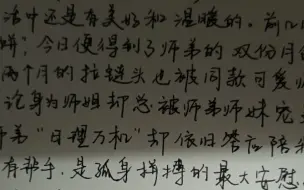 活中还是有美好和温暖的。前几
饼，今日便得到了师弟的双份月
两个月的拉链头也被同款可爱
论身为师姐却总被师弟师妹宠
弟“日理万机”却依旧答应陪
有帮手，是孤身拼搏的最大安慰